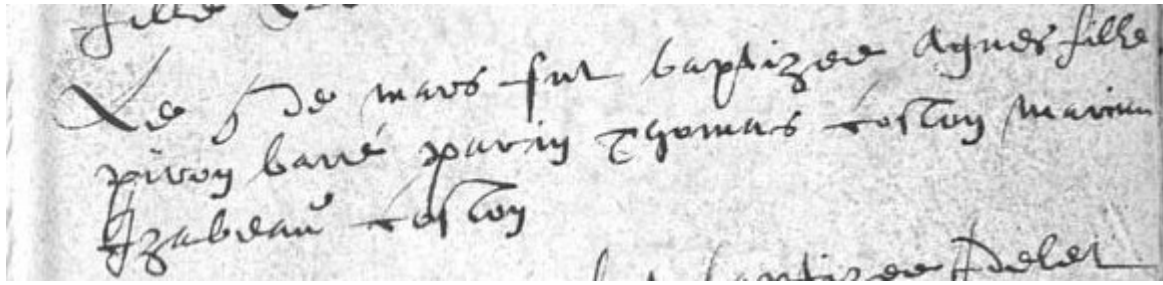 fille
Le 5 de mars fut baptizee Agnes fille
piron barré parin Thomas toston marinne
Izabeau toston
baptizee